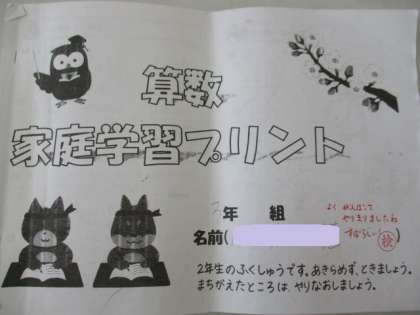 算数
家庭学習プリント
2年 組
よくがんばって
やりきりましたね
すばらしい
検
名前( )
2年生のふくしゅうです。あきらめず、ときましょう。
まちがえたところは、やりなおしましょう。